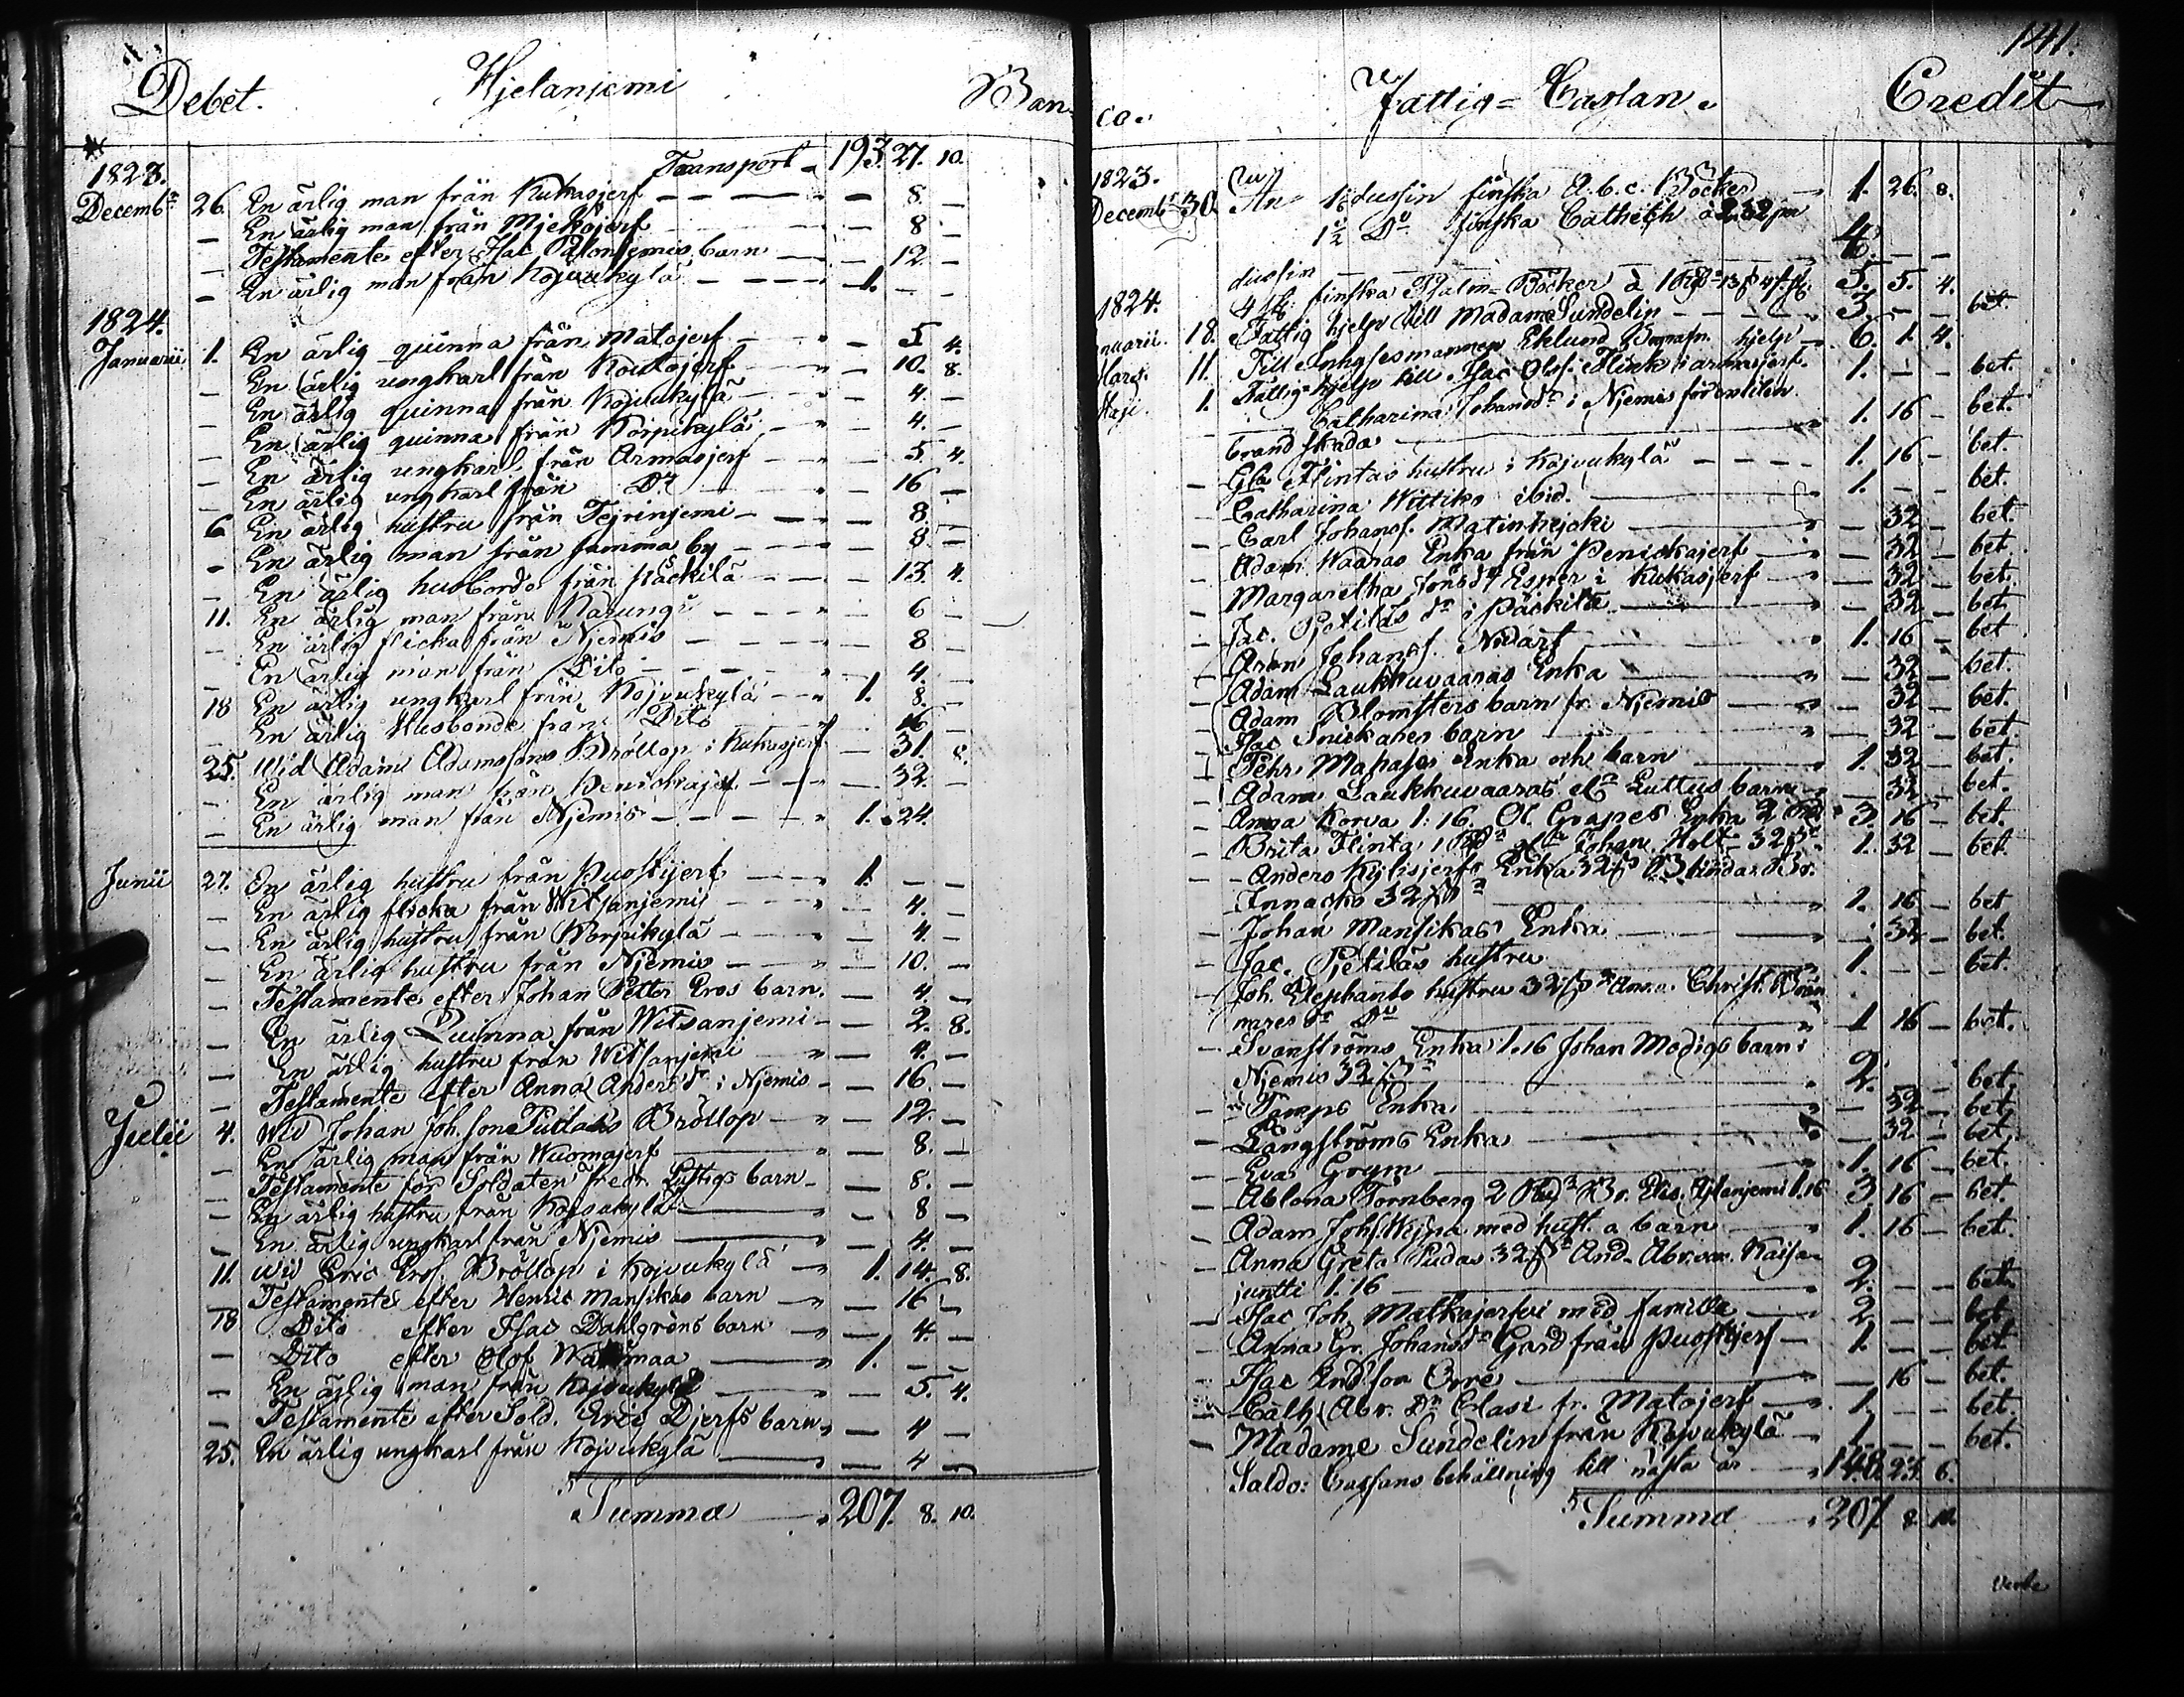 141.
Debet. Hjetanjemi Ban-
1823. Transport 193. 27. 10.
Decembr 26. En ärlig man från Kukasjerf — 8. —
— En ärlig man från Mjekojerf — 8 —
— Testamente efter Isac Palonjemis barn — 12. —
— En ärlig man från Kojvukylä 1. — —
1824.
Januarii 1. En ärlig quinna från Matojerf — 5 4.
— En ärlig ungkarl från Koutojerf — 10. 8.
— En ärlig quinna från Kojvukylä — 4. —
— En ärlig quinna från Korpikylä — 4. —
— En ärlig ungkarl från Armasjerf — 5 4.
— En ärlig ungkarl från Do — 16 —
6 En ärlig hustru från Tejrinjemi — 8 —
— En ärlig man från samma by — 8 —
— En ärlig husbonde från Päckilä — 13. 4.
11. En ärlig man från Karungi — 6 —
— En ärlig flicka från Njemis — 8 —
— En ärlig man från Dito — 4. —
18 En ärlig ungkarl från Kojvukylä 1. 8. —
— En ärlig Husbonde från Dito — 16 —
25. Wid Adam Adamssons Bröllop i Kukasjerf — 31. 8.
— En ärlig man från Penickajerf — 32. —
— En ärlig man från Njemis 1. 24.
Junii 27. En ärlig hustru från Puostijerf 1. — —
— En ärlig flicka från Witsanjemi — 4. —
— En ärlig hustru från Korpikylä — 4. —
— En ärlig hustru från Njemis — 10. —
— Testamente efter Johan Petter Eros barn. — 4. —
— En ärlig Quinna från Witsanjemi — 2. 8.
— En ärlig hustru från Witsanjemi — 4. —
— Testamente efter Anna Anders dr i Njemis — 16. —
Julii 4. Wid Johan Joh. sons Bröllop — 12. —
— En ärlig man från Wuomajerf — 8. —
— Testamente för Soldaten Fredr. Lustigs barn — 8. —
— En ärlig hustru från Kojvukylä — 8 —
— En ärlig ungkarl från Njemis — 4. —
11. Wid Eric Ers. Bröllop i Kojvukylä 1. 14. 8.
— Testamente efter Henric Mansikas barn — 16 —
18 Dito efter Isac Dahlgrens barn — 4. —
— Dito efter Olof 1. — —
— En ärlig man från Kojvukylä — 5. 4.
— Testamente efter Sold. Eric Djerfs barn — 4 —
25. En ärlig ungkarl från Kojvukylä — 4 —
Summa 207. 8. 10.
co. Fattig=Cassan. Credit
1823.
Decembr 30. An 1½ dussin finska A.b.c. Böcker 1. 26. 8.
1½ Do finska Cathech
dussin 4. — —
4 st. finska Psalm=Böcker 5. 5. 4.
1824.
nuarii. 18. Fattig hjelp till Madame Sundelin 3. — — bet.
Mars. 11. Till Eklund hjelp 6. 1. 4.
Maji. 1. Fattig-hjelp till Isac Olofs. Flink i armasjerf. 1. — — bet.
— Catharina Johansdr i Njemis för
brand skada 1. 16 — bet.
— Gla Flintas hustru i Kojvukylä 1. 16 — bet.
— Catharina Wittiko ibid. 1. — — bet.
— Carl Johanss. Matinhejcki — 32 — bet.
— Adam Waaras Enka från Penickajerf — 32 — bet.
— Margaretha Jönsdr Esper i Kukasjerf — 32 — bet.
— Jac. Pjetiläs dr i Päckilä — 32 — bet.
— Aron Johanss. Nodarf 1. 16 — bet
— Adam Laukkuvaaras Enka — 32 — bet.
— Adam Blomsters barn fr. Njemis — 32 — bet.
— Isac Snickares barn — 32 — bet.
— Pehr Enka och barn 1. 32 — bet.
— Adam Laukkuvaaras Luttus barn — 32 — bet.
— Anna Korva 1:16. Ol. Grapes Enka 2 3 16 — bet.
— Brita Flinta 1 Johan Holt 32 1. 32 — bet.
— Anders Kylisjerfs Enka 32
32 1. 16 — bet
— Johan Mansikas Enka — 32 — bet.
— Jac. Pjetiläs hustru 1. — — bet.
— Joh. Elephants hustru 32 Anna Christ.
1 16 — bet.
— Svanströms Enka 1.16 Johan Modigs barn i
Njemis 32 2. — — bet.
— Tamps Enka — 32 — bet.
— Långströms Enka — 32 — bet.
— Eva Grym 1. 16 — bet.
— Ablona Tornberg 2 1.16 3 16 — bet.
— Adam Johs. med hust. o barn 1. 16 — bet.
— Anna Greta Pudas 32 And. Kaisa-
juntti 1.16 2. — — bet.
— Isac Joh. Matkajerfvi med familie 2. — — bet.
— Anna Gr. Johansdr Gard från Puostijerf 1. — — bet.
— Isac Andson Orre — 16 — bet.
— Cath. Abr. Dr Clasi fr. Matojerf 1. — — bet.
— Madame Sundelin från Kojvukylä 1. — — bet.
Saldo: Cassans behållning till nästa år 148. 27. 6.
Summa 207. 8. 10.
Verte